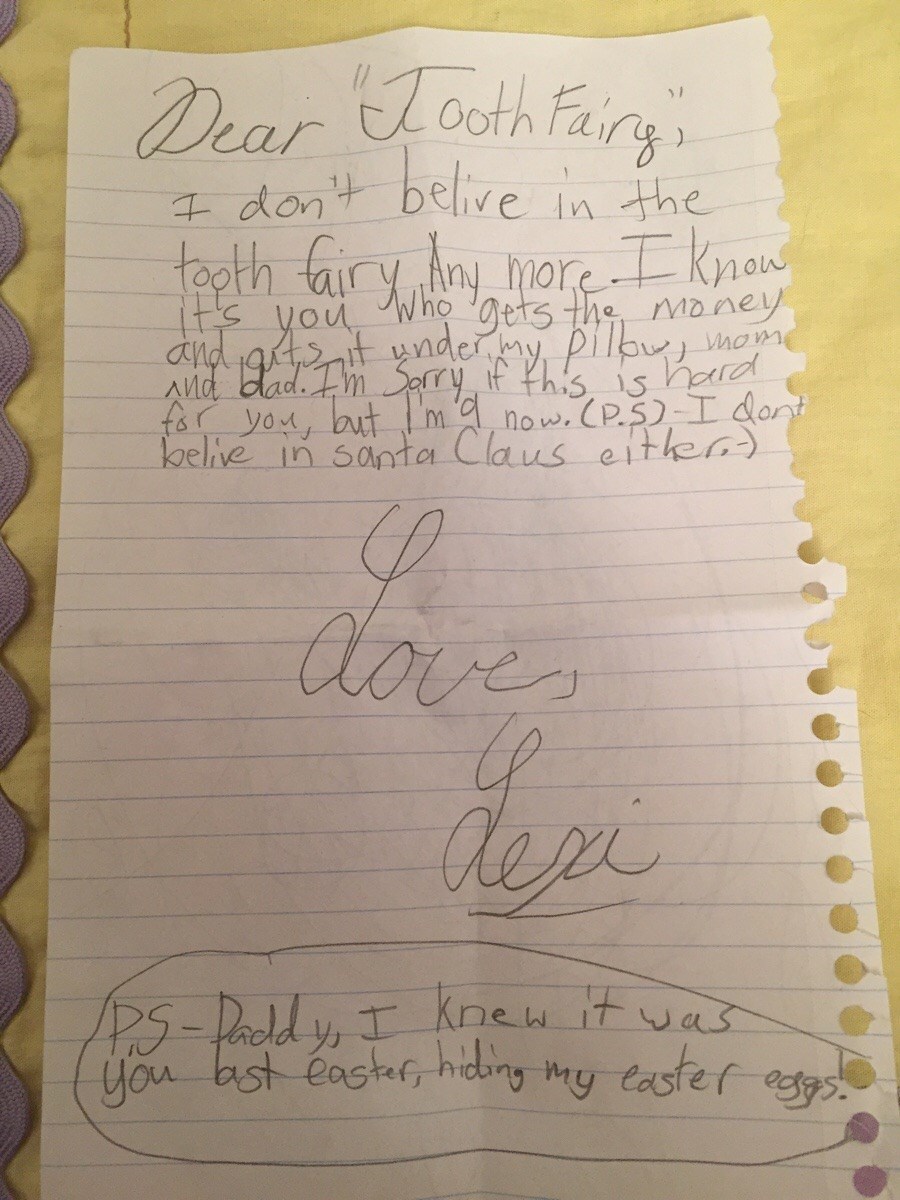 Dear "Tooth Fairy,"
I don't belive in the
tooth fairy Any more. I know
it's you who gets the money
and puts it under my pillow, mom
and dad. I'm Sorry if this is hard
for you, but I'm 9 now. (P.S)-I dont
belive in santa Claus either.-)
Love,
Lexi
P.S-Daddy, I knew it was
you last easter, hiding my easter eggs!